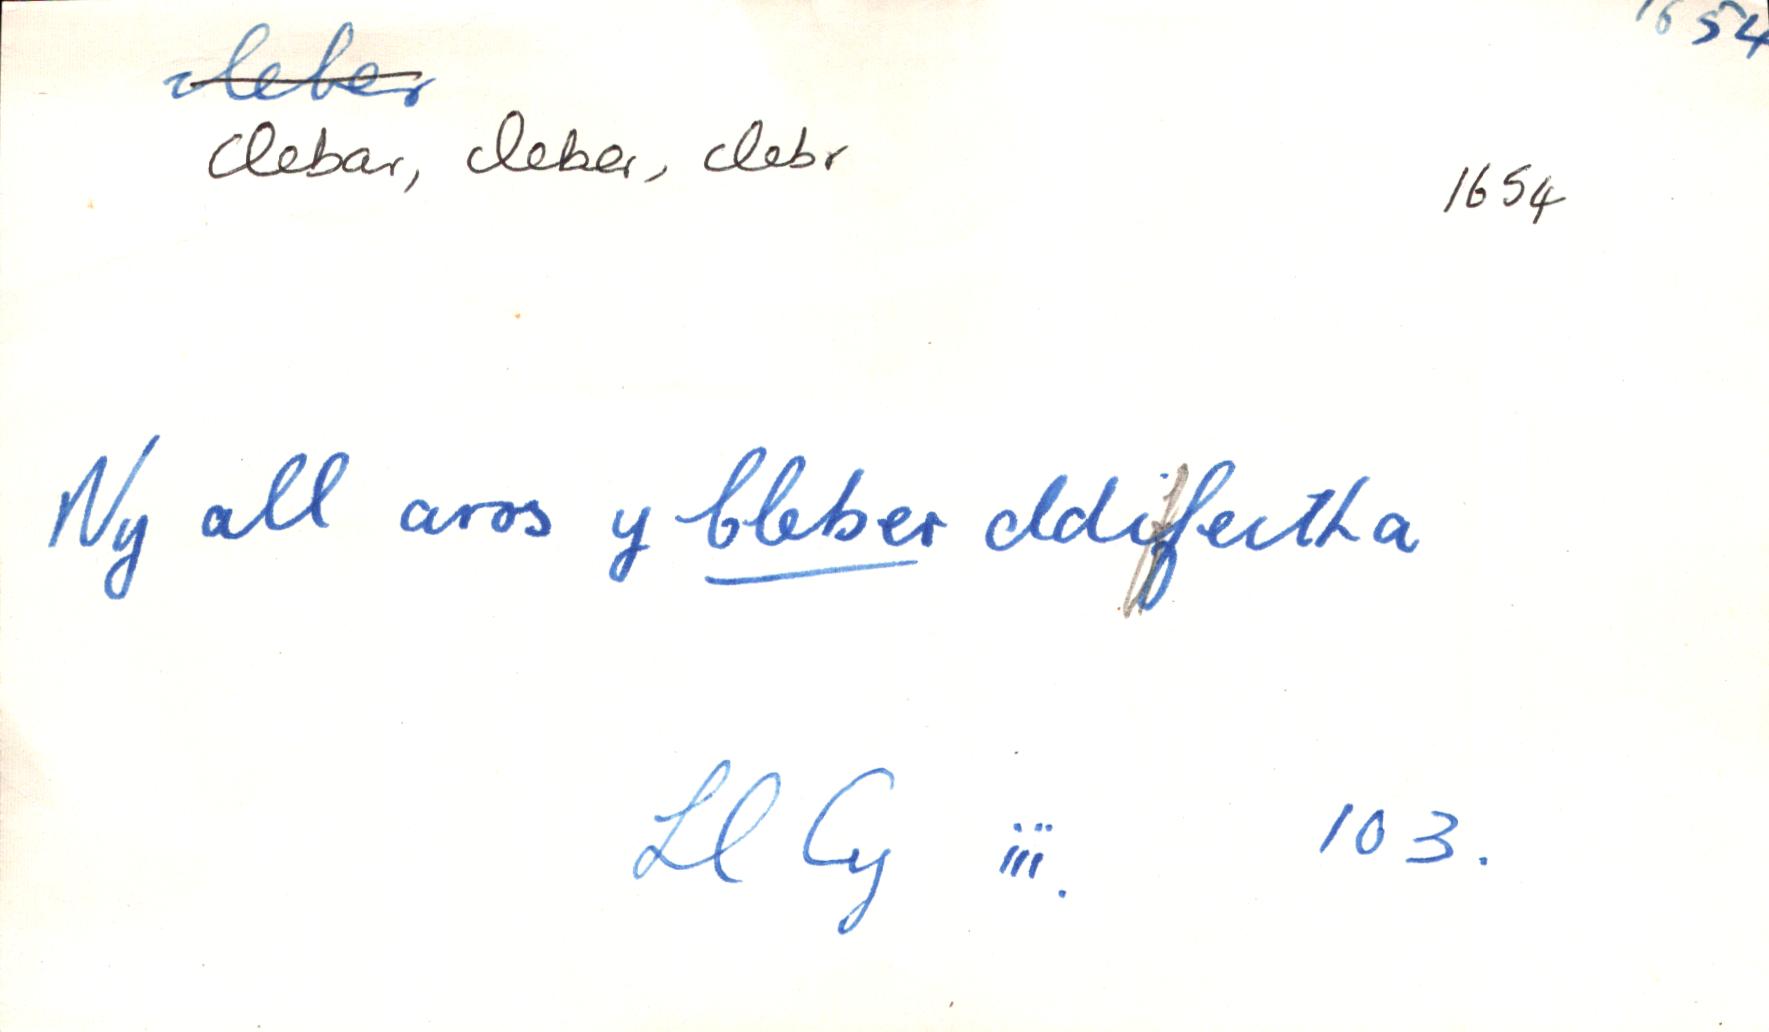 1654
cleber
clebar, cleber, clebr
1654
Ny all aros y bleber ddiffeitha
Ll Cy iii. 103.